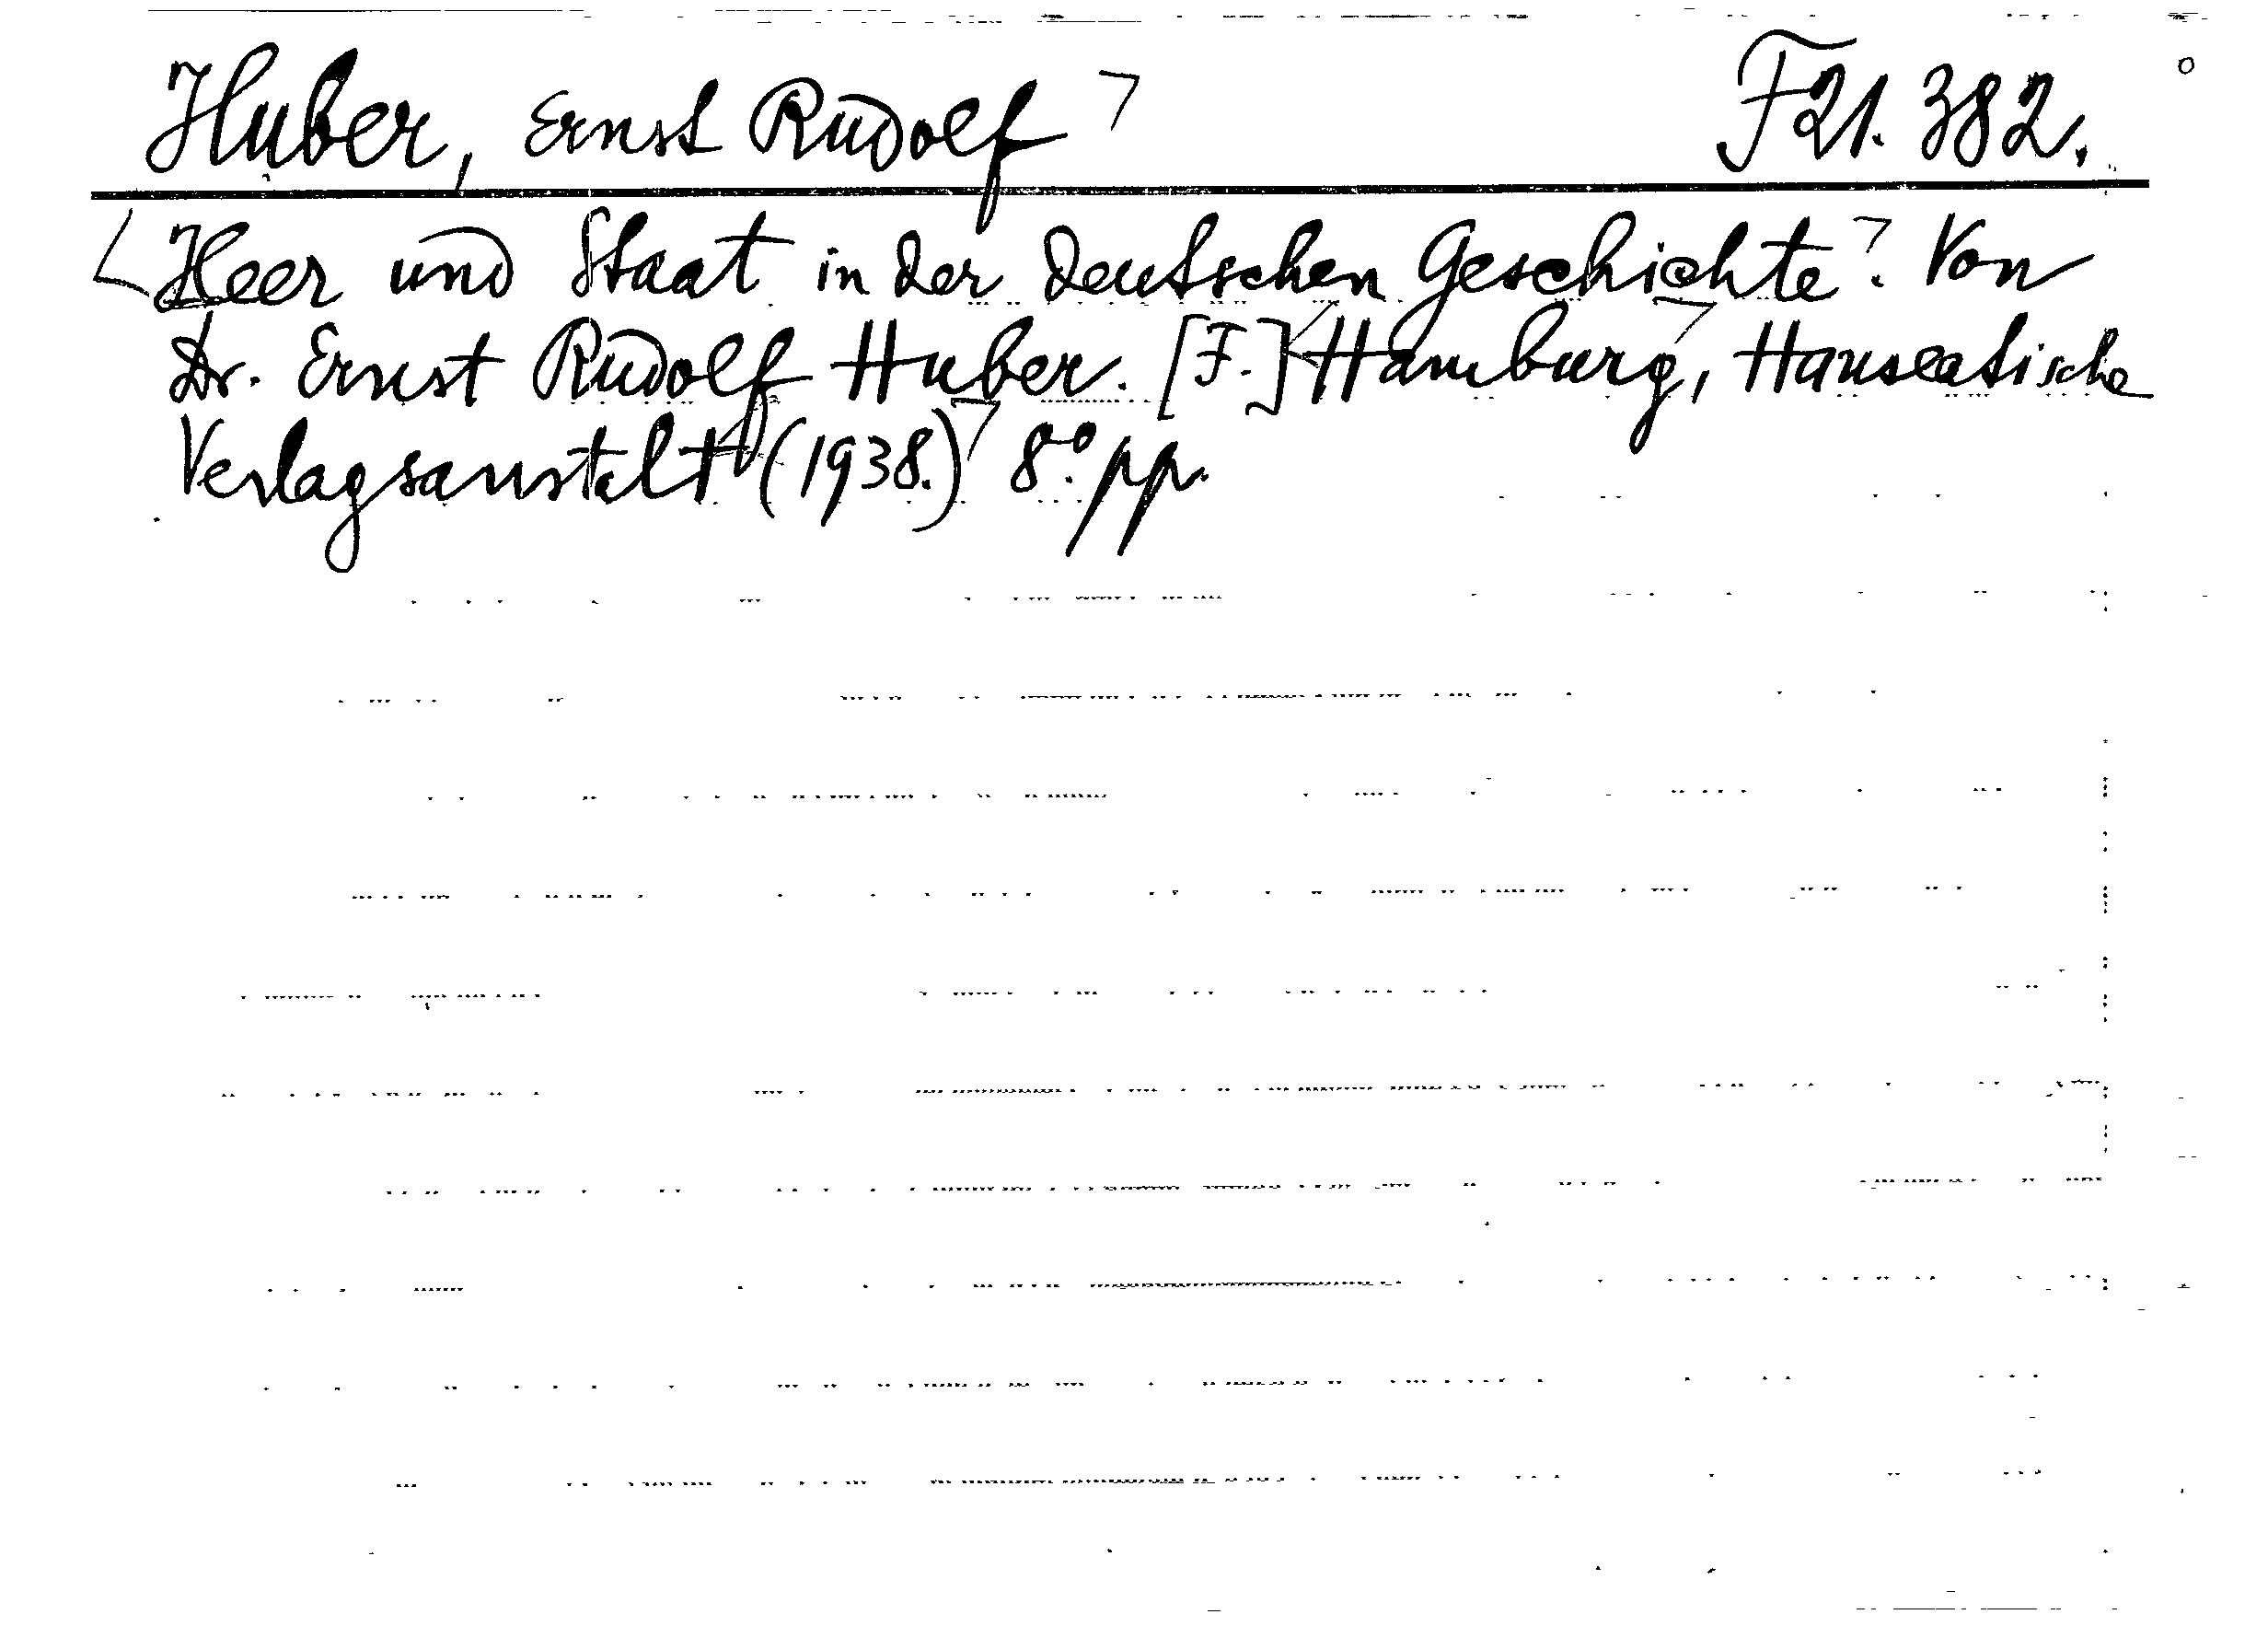 Huber, Ernst Rudolf F21.382.
Heer und Staat in der deutschen Geschichte. Von
Dr. Ernst Rudolf Huber. [F.] Hamburg, Hanseatische
Verlagsanstalt (1938.) 8º. pp.